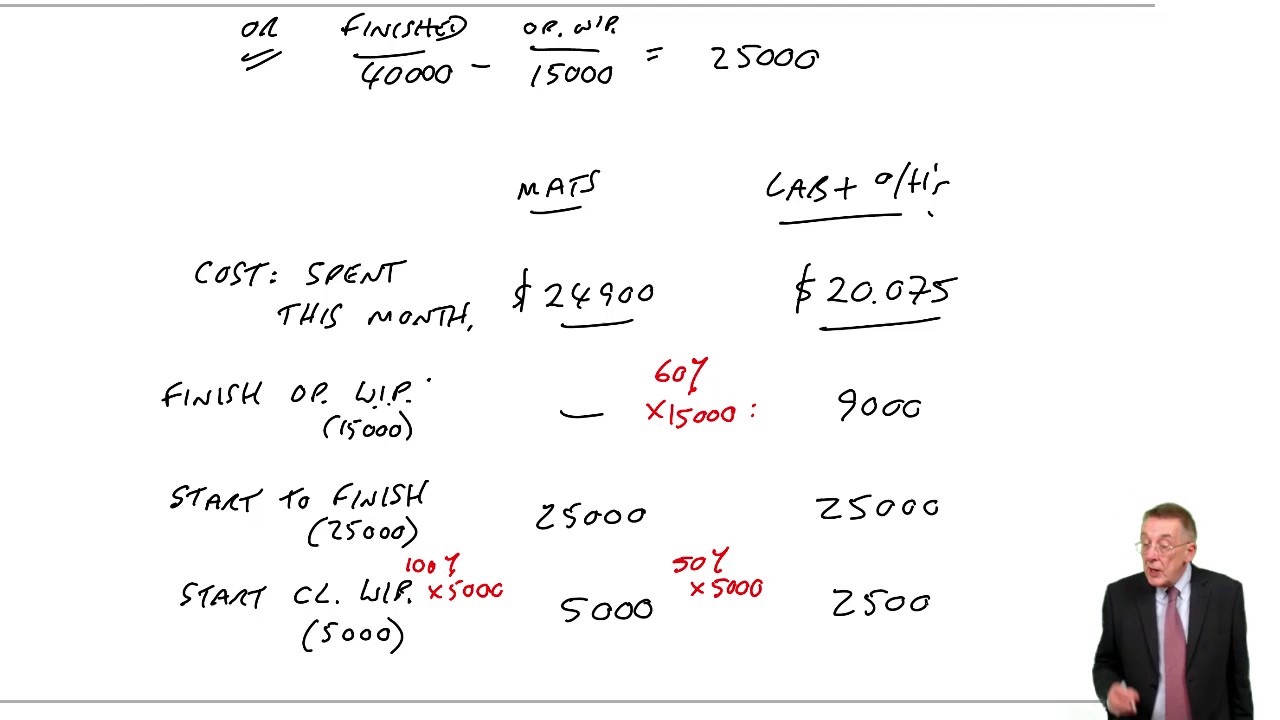 OR FINISHED OP. WIP.
40000 - 15000 = 25000
MATS LAB + O/H's
COST: SPENT
THIS MONTH, $24900 $20.075
60%
FINISH OP. W.I.P. — ×15000: 9000
(15000)
START TO FINISH 25000 25000
(25000)
100% 50%
START CL. WIP. ×5000 5000 ×5000 2500
(5000)